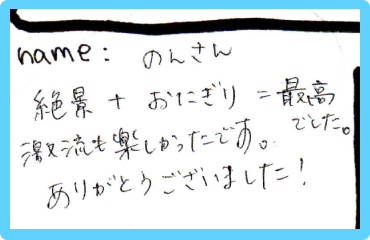 name: のんさん
絶景 + おにぎり = 最高でした。
激流も楽しかったです。
ありがとうございました!